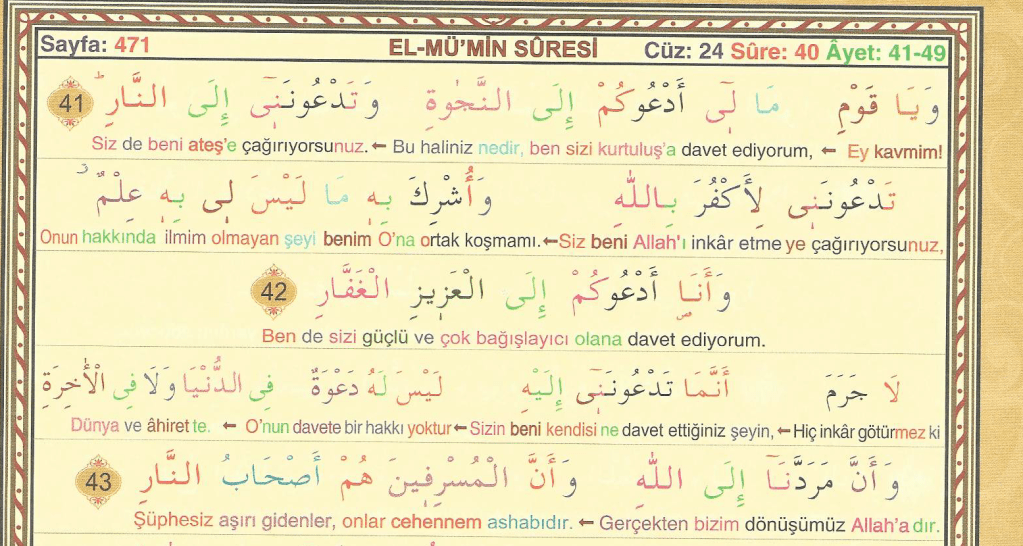 Sayfa: 471 EL-MÜ'MİN SÛRESİ Cüz: 24 Sûre: 40 Âyet: 41-49
وَيَا قَوْمِ مَا لٖٓى أَدْعُوكُمْ إِلَى النَّجٰوةِ وَتَدْعُونَنٖٓى إِلَى النَّارِ ۜ 41
Siz de beni ateş'e çağırıyorsunuz. ← Bu haliniz nedir, ben sizi kurtuluş'a davet ediyorum, ← Ey kavmim!
تَدْعُونَنٖى لِأَكْفُرَ بِاللّٰهِ وَأُشْرِكَ بِهٖ مَا لَيْسَ لٖى بِهٖ عِلْمٌ
Onun hakkında ilmim olmayan şeyi benim O'na ortak koşmamı. ← Siz beni Allah'ı inkâr etme ye çağırıyorsunuz,
وَأَنَا۬ أَدْعُوكُمْ إِلَى الْعَزٖيزِ الْغَفَّارِ 42
Ben de sizi güçlü ve çok bağışlayıcı olana davet ediyorum.
لَا جَرَمَ أَنَّمَا تَدْعُونَنٖٓى إِلَيْهِ لَيْسَ لَهُ دَعْوَةٌ فِى الدُّنْيَا وَلَا فِى الْأٰخِرَةِ
Dünya ve âhiret te. ← O'nun davete bir hakkı yoktur ← Sizin beni kendisi ne davet ettiğiniz şeyin, ← Hiç inkâr götürmez ki
وَأَنَّ مَرَدَّنَٓا إِلَى اللّٰهِ وَأَنَّ الْمُسْرِفٖينَ هُمْ أَصْحَابُ النَّارِ 43
Şüphesiz aşırı gidenler, onlar cehennem ashabıdır. ← Gerçekten bizim dönüşümüz Allah'a dır.